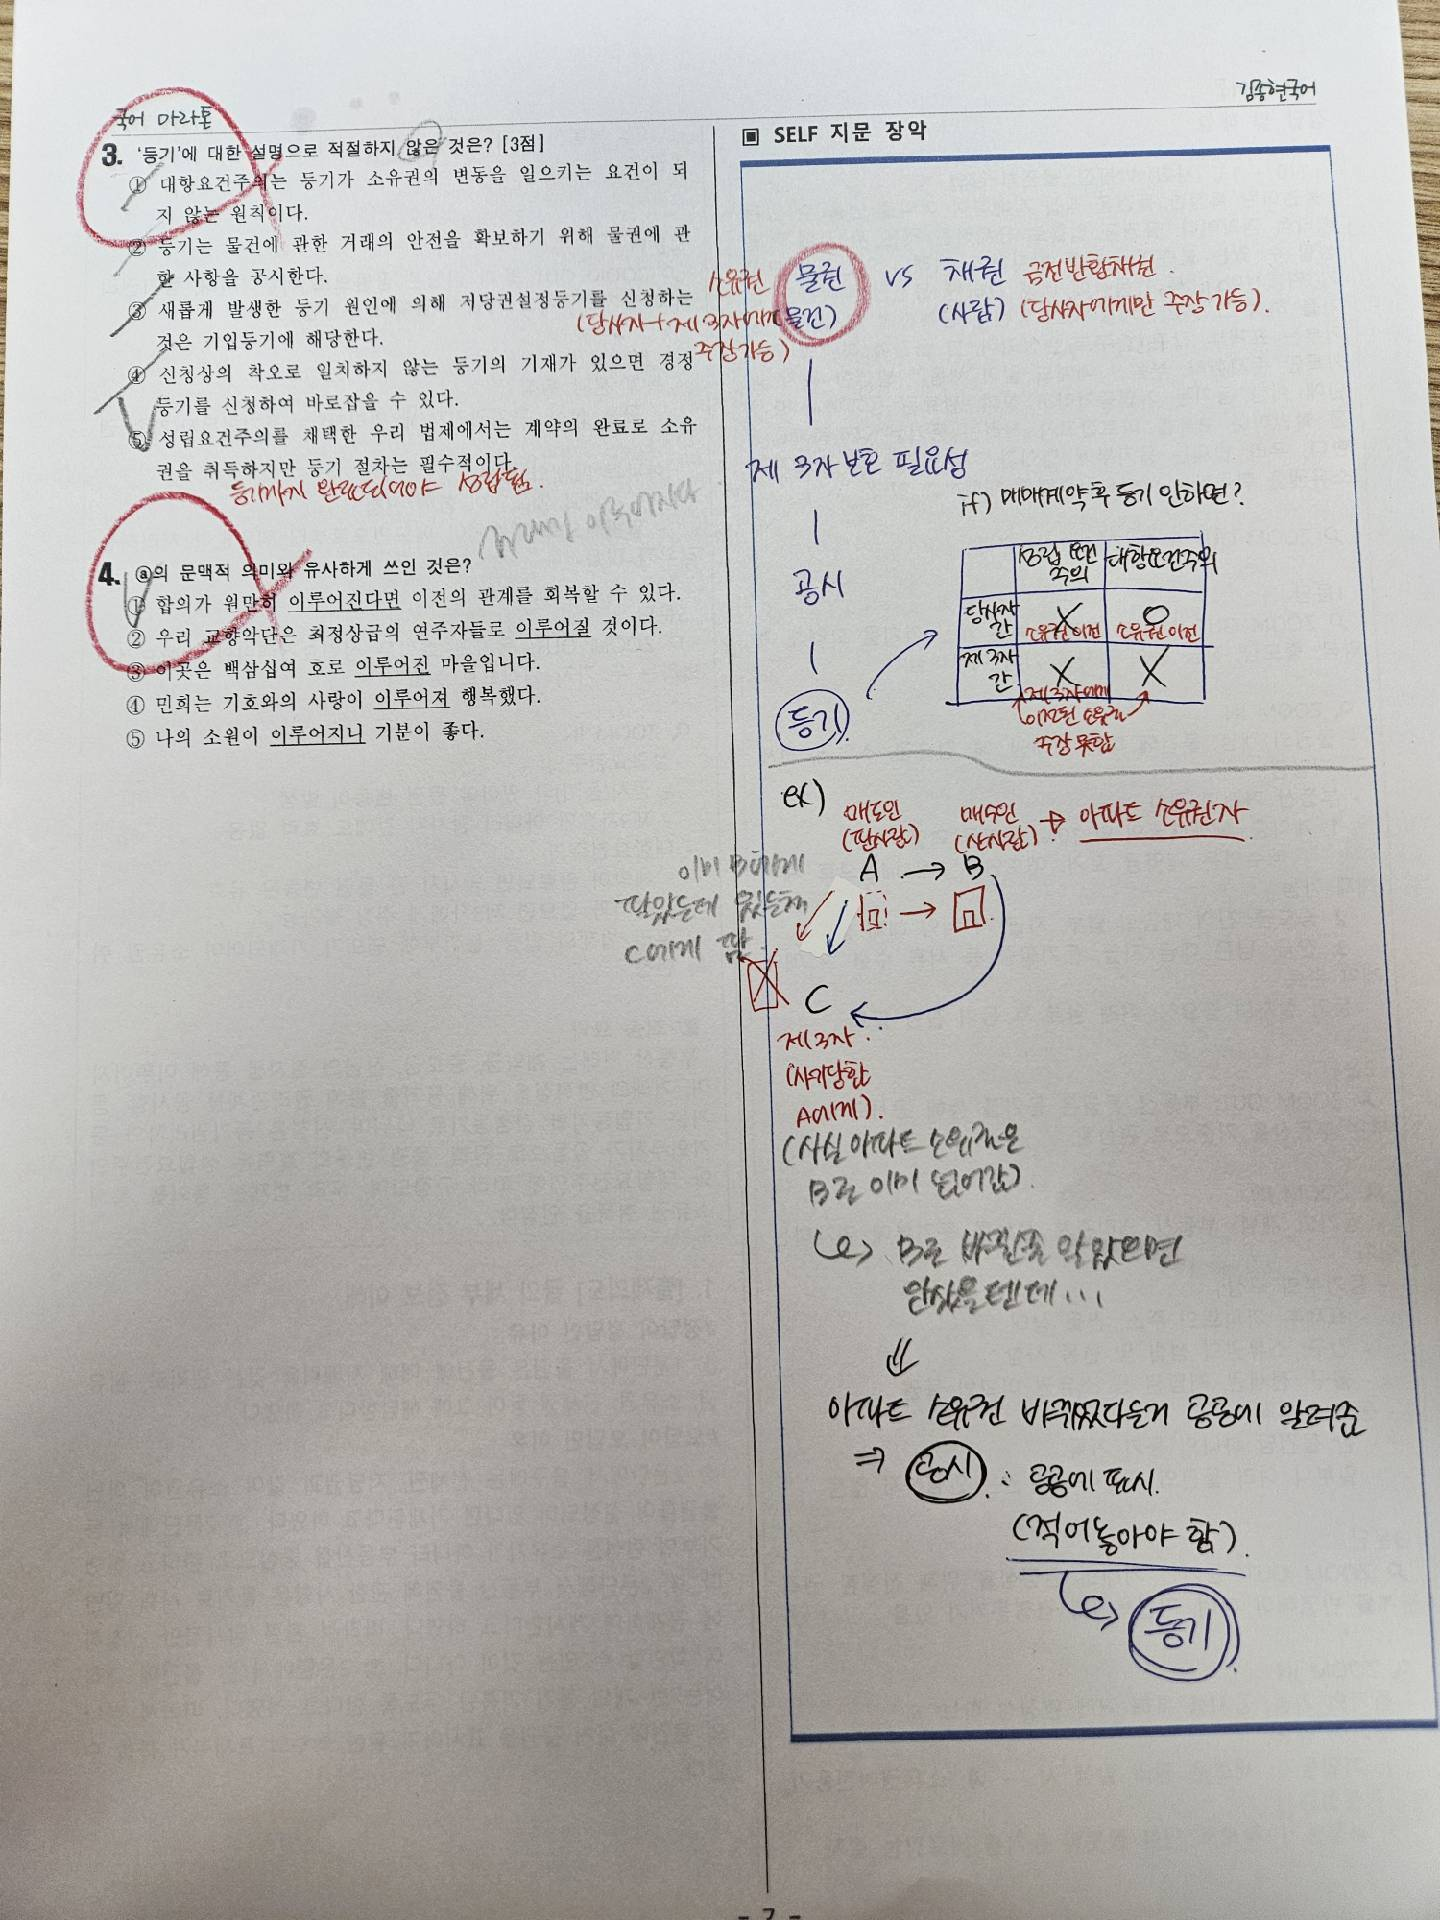 국어 마라톤
김종현국어
3. '등기'에 대한 설명으로 적절하지 않은 것은? [3점]
① 대항요건주의는 등기가 소유권의 변동을 일으키는 요건이 되
지 않는 원칙이다.
② 등기는 물건에 관한 거래의 안전을 확보하기 위해 물권에 관
한 사항을 공시한다.
③ 새롭게 발생한 등기 원인에 의해 저당권설정등기를 신청하는
것은 기입등기에 해당한다.
④ 신청상의 착오로 일치하지 않는 등기의 기재가 있으면 경정
등기를 신청하여 바로잡을 수 있다.
⑤ 성립요건주의를 채택한 우리 법제에서는 계약의 완료로 소유
권을 취득하지만 등기 절차는 필수적이다.
등기까지 완료되어야 성립됨.
이루어지다
4. ⓐ의 문맥적 의미와 유사하게 쓰인 것은?
① 합의가 원만히 이루어진다면 이전의 관계를 회복할 수 있다.
② 우리 교향악단은 최정상급의 연주자들로 이루어질 것이다.
③ 이곳은 백삼십여 호로 이루어진 마을입니다.
④ 민희는 기호와의 사랑이 이루어져 행복했다.
⑤ 나의 소원이 이루어지니 기분이 좋다.
▣ SELF 지문 장악
소유권 물권 vs 채권 금전반환채권.
(당사자+제3자에게 (물건) (사람) (당사자에게만 주장 가능).
주장가능)
제 3자 보호 필요성
if) 매매계약 후 등기 안하면?
공시
등기
성립 요건주의 대항요건주의
당사자간 X 소유권이전 O 소유권 이전
제 3자간 X X
제3자에게
이전된 소유권
주장 못함
ex)
매도인 매수인 → 아파트 소유권자
(판사람) (산사람)
A → B
이미 B에게
팔았는데 있는척
C에게 팖.
C
제3자.
(사기당함
A에게).
(사실 아파트 소유권은
B로 이미 넘어감)
B로 바뀐줄 알았으면
안샀을텐데...
⇓
아파트 소유권 바뀌었다는거 공공에 알려줌
⇒ 공시 : 공공에 표시.
(적어놓아야 함).
등기
- 7 -